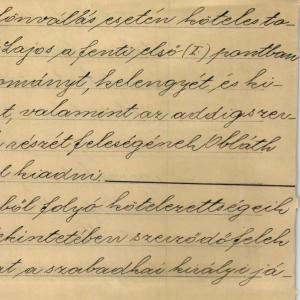 lönvállás esetén köteles ta-
Lajos a fenti első (I.) pontban
ományt, kelengyét, és ki-
t, valamint az addig szer-
részét feleségének Obláth
l kiadni.
ből folyó kötelezettségeik
ekintetében szerződő felek
at a szabadkai királyi já-